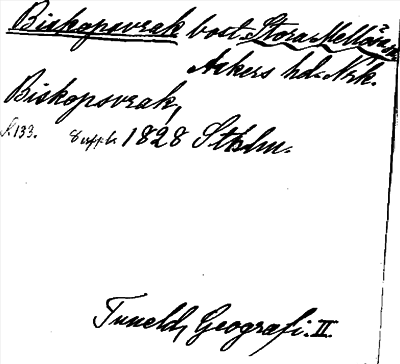 Biskopsvrak bost. Stora Mellösa sn
Askers hd. Nrk.
Biskopsvrak,
S. 133. 8 uppl. 1828 Sthlm.
Tuneld, Geografi. II.